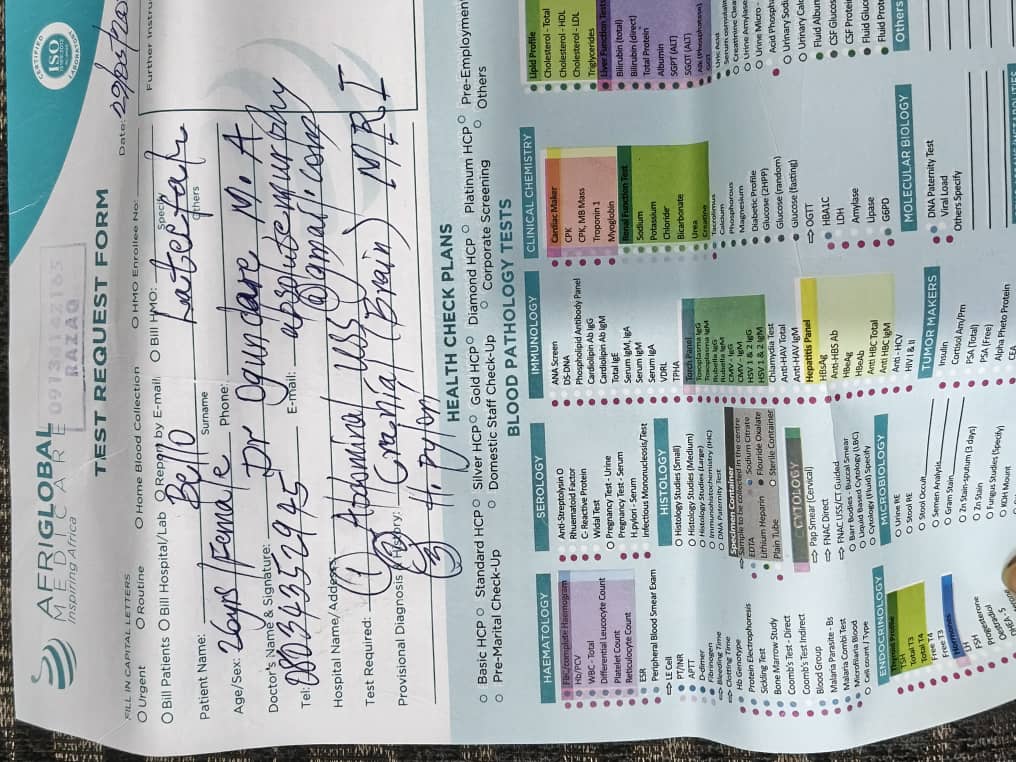 AFRIGLOBAL
MEDICARE
Inspiring Africa
09134242165
RAZAQ
CERTIFIED
ISO
TEST REQUEST FORM
FILL IN CAPITAL LETTERS
Date: 29/05/20
Urgent Routine Home Blood Collection HMO Enrollee No:
Bill Patients Bill Hospital/Lab Report by E-mail: Bill HMO: Specify
Further Instru
Patient Name: Bello Lateefah
Surname Others
Age/Sex: 26yrs/Female Phone:
Doctor's Name & Signature: Dr Ogundare M. A
Tel: E-mail:
@gmail.com
Hospital Name/Address:
Test Required: (1) Abdominal USS
(2) Cranial (Brain) MRI
Provisional Diagnosis / History:
(3)
HEALTH CHECK PLANS
Basic HCP Standard HCP Silver HCP Gold HCP Diamond HCP Platinum HCP Pre-Employmen
Pre-Marital Check-Up Domestic Staff Check-Up Corporate Screening Others
BLOOD PATHOLOGY TESTS
HAEMATOLOGY
FBC/complete Haemogram
Hb/PCV
WBC - Total
Differential Leucocyte Count
Platelet Count
Reticulocyte Count
ESR
Peripheral Blood Smear Exam
LE Cell
PT/INR
APTT
D-dimer
Fibrinogen
Bleeding Time
Clotting Time
Hb Genotype
Protein Electrophoresis
Sickling Test
Bone Marrow Study
Coomb's Test - Direct
Coomb's Test Indirect
Blood Group
Malaria Parasite - Bs
Malaria Combi Test
Microfilaria Blood
Cell count / Type
ENDOCRINOLOGY
Thyroid Profile
TSH
Total T3
Total T4
Free T4
Free T3
Hormones
LH
FSH
Testosterone
Progesterone
Oestradiol
SEROLOGY
Anti-Streptolysin O
Rhuematoid Factor
C- Reactive Protein
Widal Test
Pregnancy Test - Urine
Pregnancy Test - Serum
H.pylori - Serum
Infectious Mononucleosis/Test
HISTOLOGY
Histology Studies (Small)
Histology Studies (Medium)
Histology Studies (Large)
Immunohistochemistry (IHC)
DNA Paternity Test
Specimen Container
Sample to be collected in the centre
EDTA Sodium Citrate
Lithium Heparin Flouride Oxalate
Plain Tube Sterile Container
CYTOLOGY
Pap Smear (Cervical)
FNAC Direct
FNAC USS/CT Guided
Barr Bodies - Buccal Smear
Liquid Based Cytology (LBC)
Cytology (Fluid) Specify
MICROBIOLOGY
Urine RE
Stool RE
Stool Occult
Semen Analysis
Gram Stain
Zn Stain-sputum (3 days)
Zn Stain
Fungus Studies (Specify)
KOH Mount
IMMUNOLOGY
ANA Screen
DS-DNA
Phospholipid Antibody Panel
Cardiolipin Ab IgG
Cardiolipin Ab IgM
Total IgE
Serum IgM, IgA
Serum IgM
Serum IgA
VDRL
TPHA
Torch Panel
Toxoplasma IgG
Toxoplasma IgM
Rubella IgG
Rubella IgM
CMV - IgG
CMV - IgM
HSV 1 & 2 IgG
HSV 1 & 2 IgM
Chlamydia Test
Anti-HAV Total
Anti-HAV IgM
Hepatitis Panel
HBsAg
Anti-HBS Ab
HBeAg
HBeAb
Anti HBC Total
Anti HBC IgM
Anti - HCV
HIV I & II
TUMOR MAKERS
Insulin
Cortisol Am/Pm
PSA (Total)
PSA (Free)
Alpha Pheto Protein
CEA
CLINICAL CHEMISTRY
Cardiac Maker
CPK
CPK, MB Mass
Troponin 1
Myoglobin
Renal Function Test
Sodium
Potassium
Chloride
Bicarbonate
Urea
Creatine
Tacrolimus
Calcium
Phosphorous
Magnesium
Diabetic Profile
Glucose (2HPP)
Glucose (random)
Glucose (fasting)
OGTT
HBA1C
LDH
Amylase
Lipase
G6PD
MOLECULAR BIOLOGY
DNA Paternity Test
Viral Load
Others Specify
Lipid Profile
Cholesterol - Total
Cholesterol - HDL
Cholesterol - LDL
Triglycerides
Liver Function Tests
Bilirubin (total)
Bilirubin (direct)
Total Protein
Albumin
SGPT (ALT)
SGOT (ALT)
Uric Acid
Creatinine Clea
Urine Amylase
Urine Micro -
Acid Phospha
Urinary Sodi
Urinary Calc
Fluid Album
CSF Glucos
CSF Protei
Fluid Gluc
Fluid Prote
Others